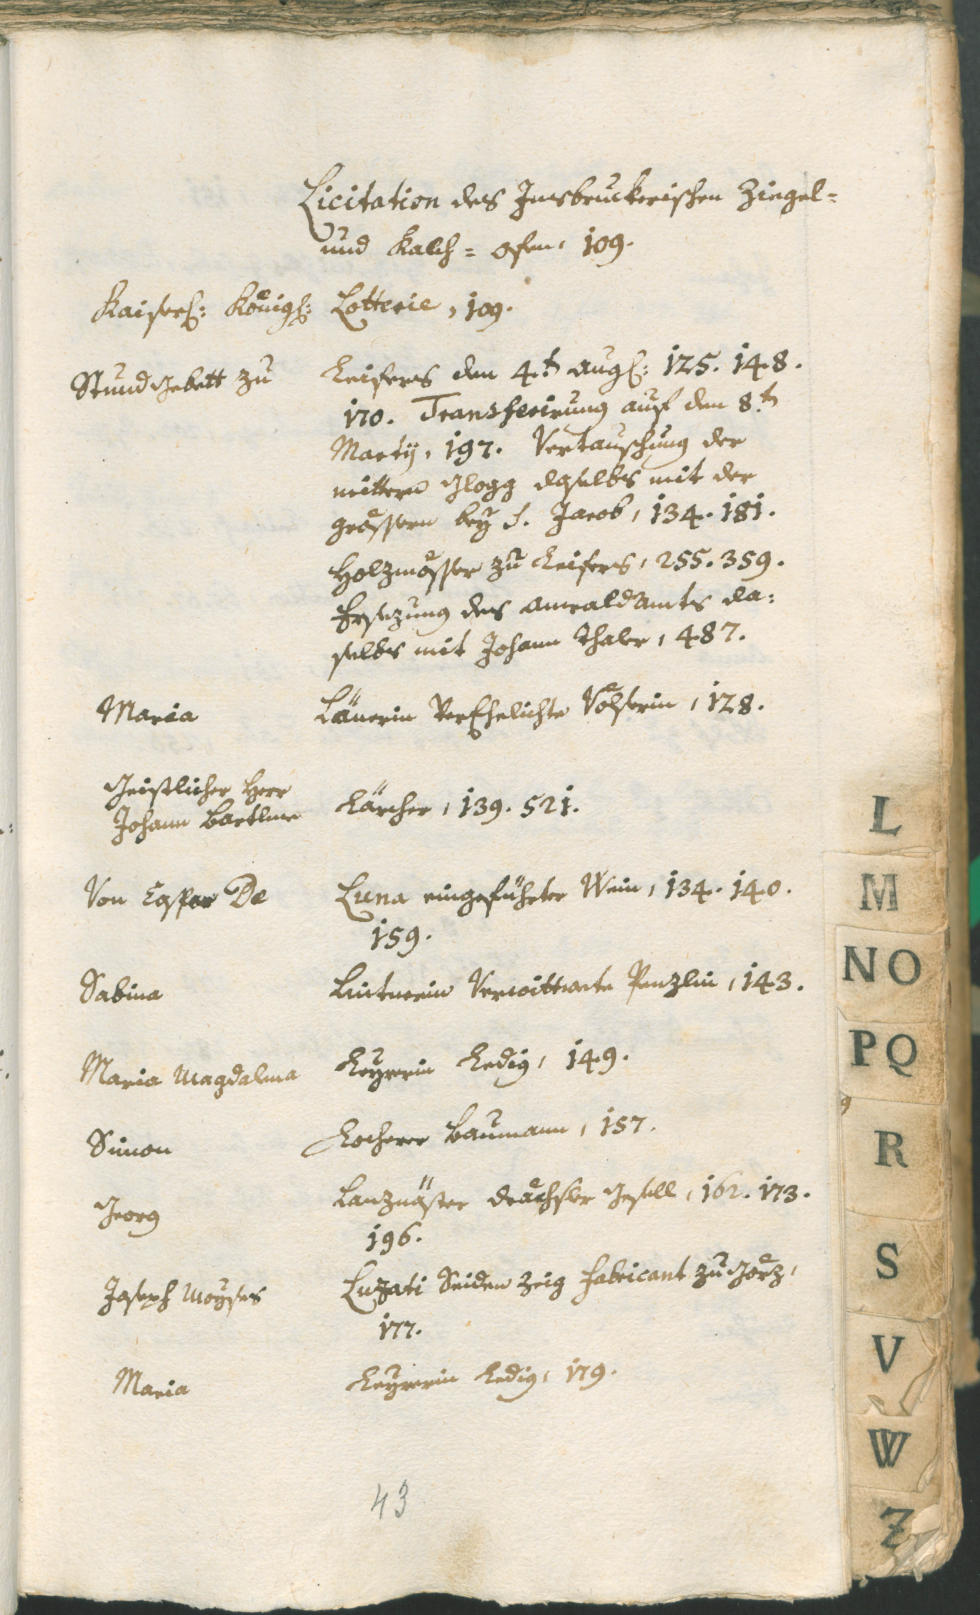 Licitation des Insbruckerischen Ziegel=
und Kalch=ofen, 109.
Kaiserl: Königl: Lotterie, 109.
Stund Gebett zu Leifers den 4.t augl: 125. 148.
170. Transferirung auf den 8.t
Martij, 197. Vertauschung der
mittern Glogg daselbs mit der
grössern bey S. Jacob, 134. 181.
Holzmösser zu Leifers, 255. 359.
Ersezung des anwaldamts da:
selbs mit Johann Thaler, 487.
Maria Länerin VerEhelichte Völserin, 128.
Geistlicher Herr
Johann Bartlme Lärcher, 139. 521.
Von Caspar De Luna eingeführter Wein, 134. 140.
159.
Sabina Lintnerin Verwittwete Penzlin, 143.
Maria Magdalena Leyrerin Ledig, 149.
Simon Locherer Baumann, 157.
Georg Lanznäster Drächsler Gesell, 162. 173.
196.
Joseph Moyses Luzati Seiden Zeig Fabricant zu Görz,
177.
Maria Leyrerin Ledig, 179.
43
L
M
NO
PQ
R
S
V
W
Z